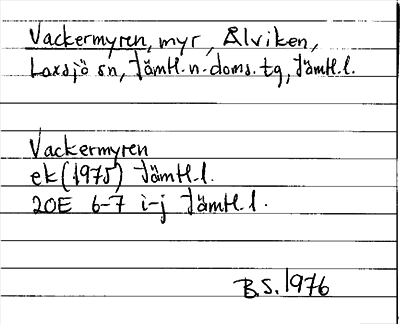 Vackermyren, myr, Ålviken,
Laxsjö sn, Jämtl. n. doms. tg, Jämtl. l.
Vackermyren
ek (1975) Jämtl. l.
20E 6-7 i-j Jämtl. l.
B.S. 1976